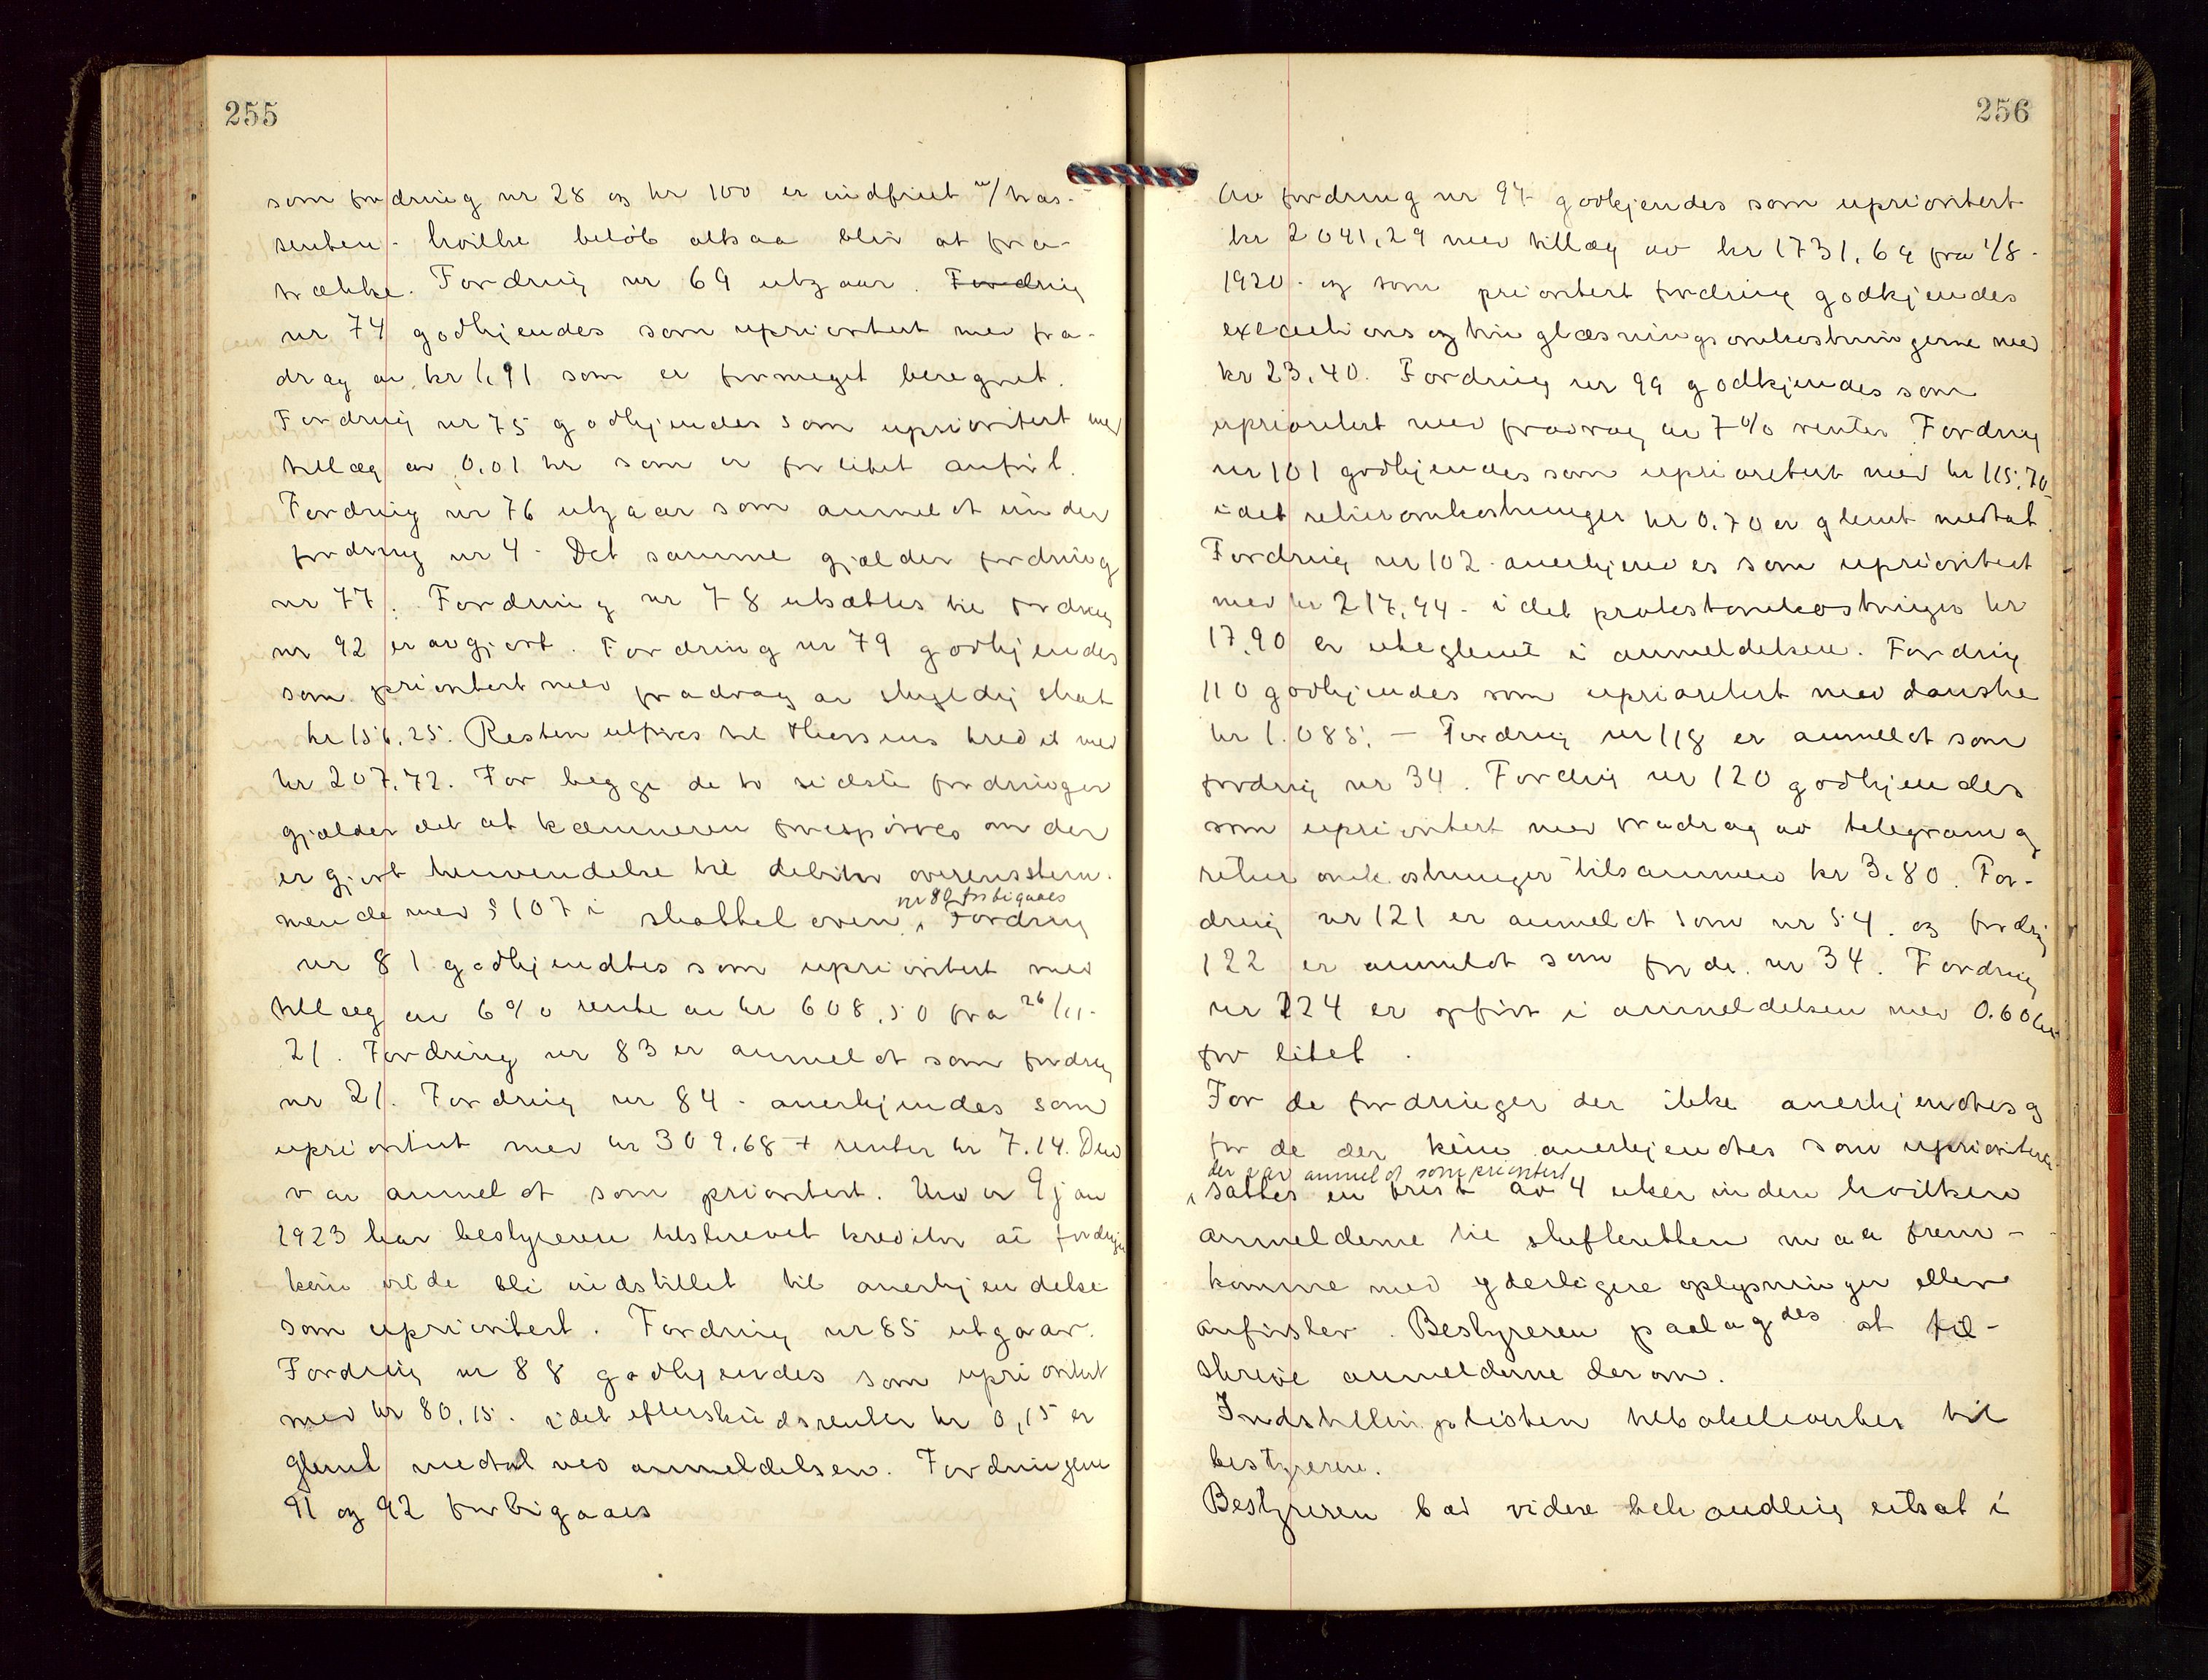 255
som fordring nr 28 og kr 100 er indfriet
renten - hvilke beløb altsaa blir at fra-
trække. Fordring nr 69 utgaar. Fordring
nr 74 godkjendes som uprioritert med fra-
drag av kr 1,91 som er formeget beregnet.
Fordring nr 75 godkjendes som uprioritert med
tillæg av 0,01 kr som er for litet anført.
Fordring nr 76 utgaar som anmeldt under
fordring nr 4 - Det samme gjælder fordring
nr 77. Fordring nr 78 utsættes til fordring
nr 92 er avgjort. Fordring nr 79 godkjendes
som prioritert med fradrag av skyldig skat
kr 156,25. Resten utføres til kredit med
kr 207,72. For begge de to sidste fordringer
gjælder det at kæmneren forespørres om der
er gjort henvendelse til debitor overensstem-
nr 80 forbigaaes
mende med § 107 i skatteloven, Fordring
nr 81 godkjendtes som uprioritert med
tillæg av 6% rente av kr 608,50 fra 26/11-
21. Fordring nr 83 er anmeldt som fordring
nr 21. Fordring nr 84 - anerkjendes som
uprioritert med kr 309,68 + renter kr 7.14. Den
var anmeldt som prioritert. Under 9 jan
1923 har bestyreren tilskrevet kreditor at fordringen
kun vilde bli indstillet til anerkjendelse
som uprioritert. Fordring nr 85 utgaar.
Fordring nr 88 godkjendes som uprioritert
med kr 80,15. idet efterskudsrenter kr 0,15 er
glemt medtal ved anmeldelsen. Fordringene
91 og 92 forbigaaes
256
Av fordring nr 94 godkjendes som uprioritert
kr 2041,29 med tillæg av kr 1731,64 fra 1/8-
1920 - og som prioritert fordring godkjendes
executions og thinglæsningsomkostningerne med
kr 23,40. Fordring nr 99 godkjendes som
uprioritert med fradrag av 7% renter. Fordring
nr 101 godkjendes som uprioritert med kr 115,70
idet returomkostninger kr 0,70 er glemt medtat.
Fordring nr 102 - anerkjendes som uprioritert
med kr 217,94 - idet protestomkostninger kr
17,90 er uteglemt i anmeldelsen. Fordring
110 godkjendes som uprioritert med danske
kr 1.085, — Fordring nr 118 er anmeldt som
fordring nr 34. Fordring nr 120 godkjendes
som uprioritert med fradrag av telegram og
retur omkostninger tilsammen kr 3,80. For-
dring nr 121 er anmeldt som nr 54. og fordring
122 er anmeldt som ford. nr 34. Fordring
nr 124 er opført i anmeldelsen med 0.60 kr
for litet.
For de fordringer der ikke anerkjendtes og
for de der kun anerkjendtes som uprioriterte
der var anmeldt som prioritert
sattes en frist av 4 uker inden hvilken
anmelderne til skifteretten maa frem-
komme med yderligere oplysninger eller
anførsler. Bestyreren paalagdes at til-
skrive anmelderne derom.
Indstillingslisten tilbakeleverles til
bestyreren.
Bestyreren bad videre behandling utsat i